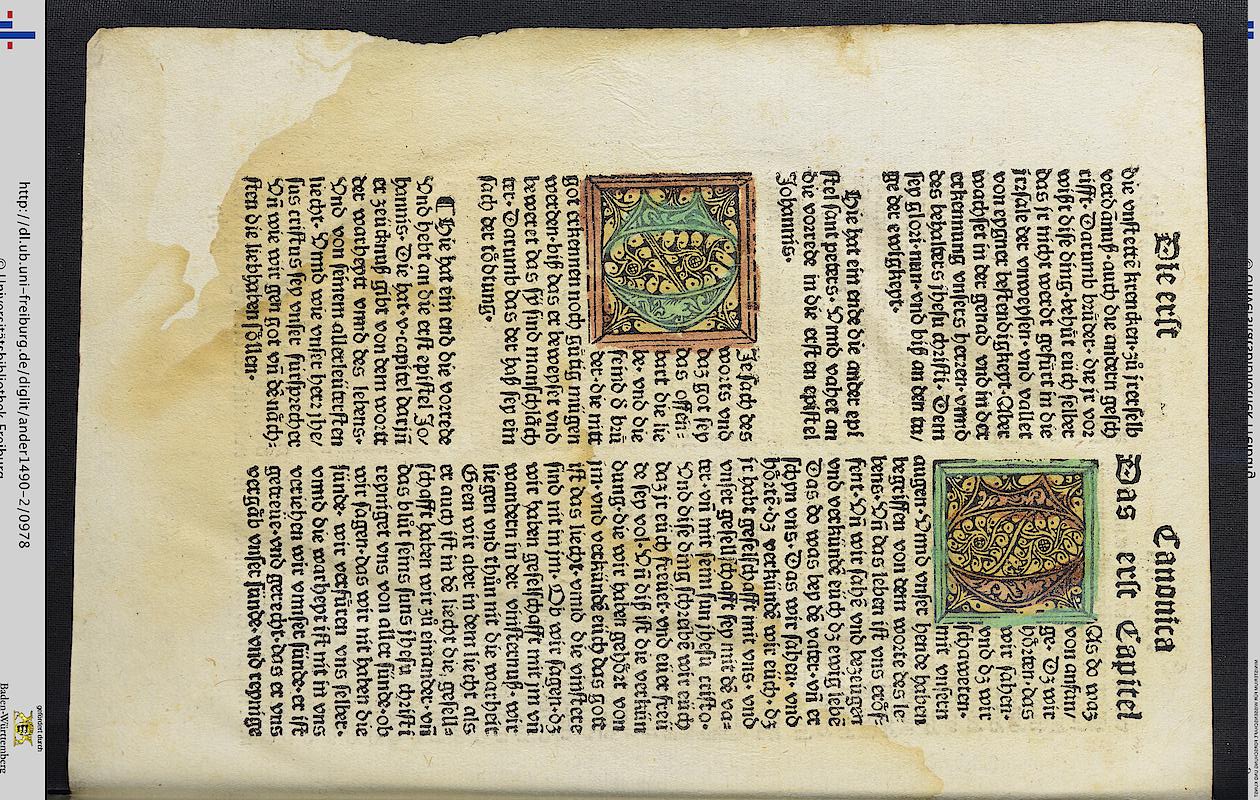 Die erst
Canonica
die vnstetē krencken· zů jr selb
verdāmnuß· auch die andern gesch
rifft· Darumb brüder· die jr vor
wißt dise ding· behüt euch selber
das jr nicht werdt gefürt in die
jrrsale der vnweysen· vnd vallet
von eygner bestendigkeyt· Aber
wachßet in der genad vnd in der
erkennung vnsers herren· vnnd
des behalters jhesu christi· Dem
sey glori· nun· vnd biß an den ta/
ge der ewigkeyt·
Hie hat ein ende die ander epi
stel sant peters· Vnnd vahet an
die vorrede in die ersten epistel
Johannis·
Je sach des
worts vnd
dz got sey
das offen=
bart die lie
be· vnd die
seind d̕ brü
der· die nitt
got erkennen noch gütig mügen
werden· biß das er beweyset vnd
beweret das sy sind manschlåch
ter· Darumb das der haß sey ein
sach der tödtung·
¶ Hie hat ein end die vorrede
Vnd hebt an die erst epistel Jo/
hannis· Die hat· v· capitel· darin̄
er zeücknuß gibt von dem wortt
der warheytt vnnd des lebens·
Vnd von seinem allerleütersten
liecht· Vnnd wie vnser herr jhe/
sus cristus sey vnser fürsprecher
Vn̄ wie wir gen got vn̄ dē nåch=
sten die lieb haben söllen·
Das erst Capitel
As do was
von anfan/
ge· Dz wir
hörten· das
wir sahen·
vnd dz wir
schawten·
mit vnsern
augen· Vnnd vnser hende haben
begriffen von dem worte des le=
bens· Vn̄ das leben ist vns eröf=
fent· Vn̄ wir sahē vnd bezeügen
vnd verkündē euch dz ewig lebē
Das do was bey dē vater· vn̄ er
schyn vns· Das wir sahen· vnd
hörtē· dz verkündē wir eüch· dz
jr habt geselschafft mit vns· vnd
vnser gesellschafft sey mit dē va=
ter· vn̄ mit seim sun jhesu cristo·
Vnd dise ding schreibē wir eüch
daz jr eüch freuet· vnd euer freü
de sey vol· Vn̄ diß ist die verkün
dung· die wir haben gehört von
jm· vnd verkündē euch das gott
ist das liecht· vnnd die vinstere
sind nit in jm· Ob wir sagen· dz
wir haben gesellschafft mit jm vn̄
wandern in der vinsternuß· wir
liegen vnd thůn nit die warheit
Geen wir aber in dem liecht als
er auch ist in dē liecht die gesell=
schafft haben wir zů einander· vn̄
das blůt seins suns jhesu christi
reyniget vns von aller sünde· ob
wir sagen· das wir nit haben die
sünde· wir verfüren vns selber·
vnnd die warheyt ist nit in vns
veriehen wir vnnser sünde· er ist
getreüe· vnd gerecht· das er vns
vergåb vnser sünde· vnd reynige
http://dl.ub.uni-freiburg.de/diglit/ander1490-2/0978
© Universitätsbibliothek Freiburg
gefördert durch
Baden-Württemberg